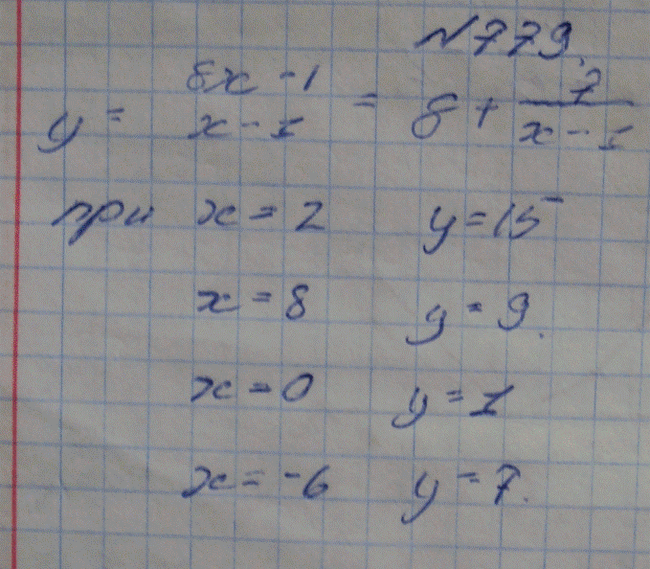 №779.
y = 8x - 1 / x - 1 = 8 + 7 / x - 1
при x = 2 y = 15
x = 8 y = 9.
x = 0 y = 1
x = -6 y = 7.